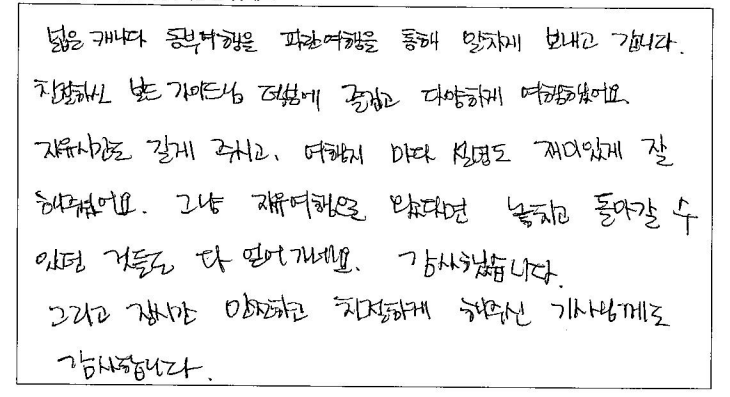 넓은 캐나다 동부여행을 파란여행을 통해 알차게 보내고 갑니다.
친절하신 보드 가이드님 덕분에 즐겁고 다양하게 여행했어요.
자유시간도 길게 주시고, 여행지 마다 설명도 재미있게 잘
해주셨어요. 그냥 자유여행으로 왔다면 놓치고 돌아갈 수
있던 것들도 다 얻어가네요. 감사했습니다.
그리고 장시간 안전하고 친절하게 해주신 기사님께도
감사합니다.